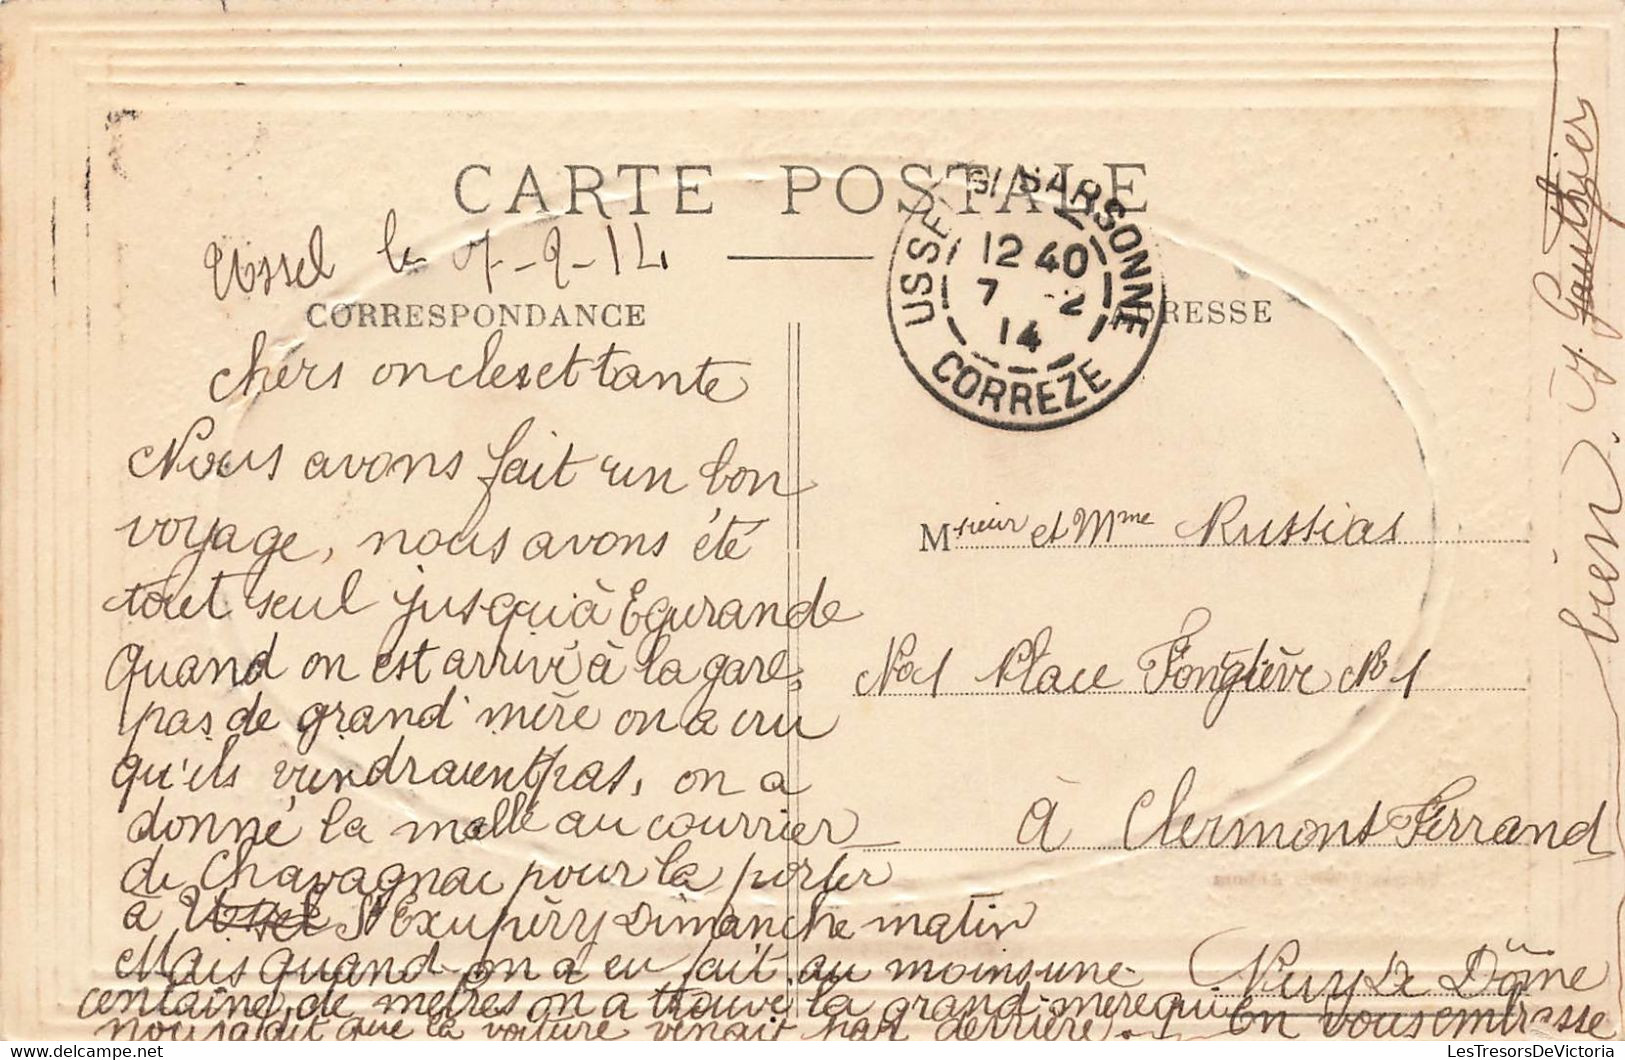 CARTE POSTALE
Ussel le 7-2-14
USSEL S/ SARSONNE
12 40
7 -2
14
CORREZE
CORRESPONDANCE
ADRESSE
chers oncles et tante
Nous avons fait un bon
voyage, nous avons été
tout seul jusqu'à Egurande
quand on est arrivé à la gare,
pas de grand' mère on a cru
qu'ils viendraient pas, on a
donné la malle au courrier
de Chavagnac pour la porter
à Ussel St Exupéry Dimanche matin
Mais quand on a eu fait au moins une
centaine de mètres on a trouvé la grand-mère qui
nous a dit que la voiture venait par derrière.
On vous embrasse
bien. J. Gauthier
Msieur et Mme Russias
No 1 Place Fongiève No 1
à Clermont Ferrand
Puy de Dôme
LesTresorsDeVictoria